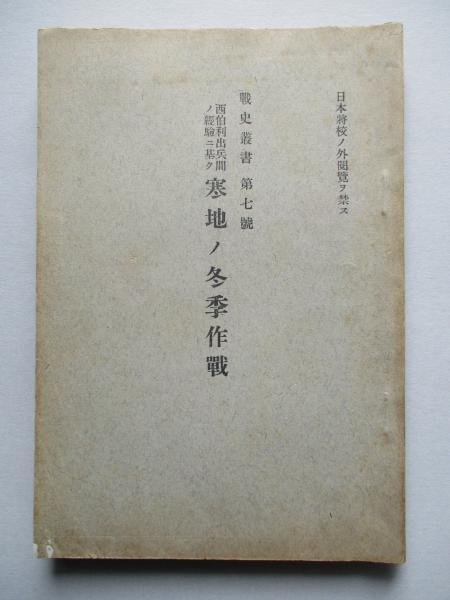 日本將校ノ外閱覽ヲ禁ス
戰史叢書 第七號
西伯利出兵間
ノ經驗ニ基ク
寒地ノ冬季作戰